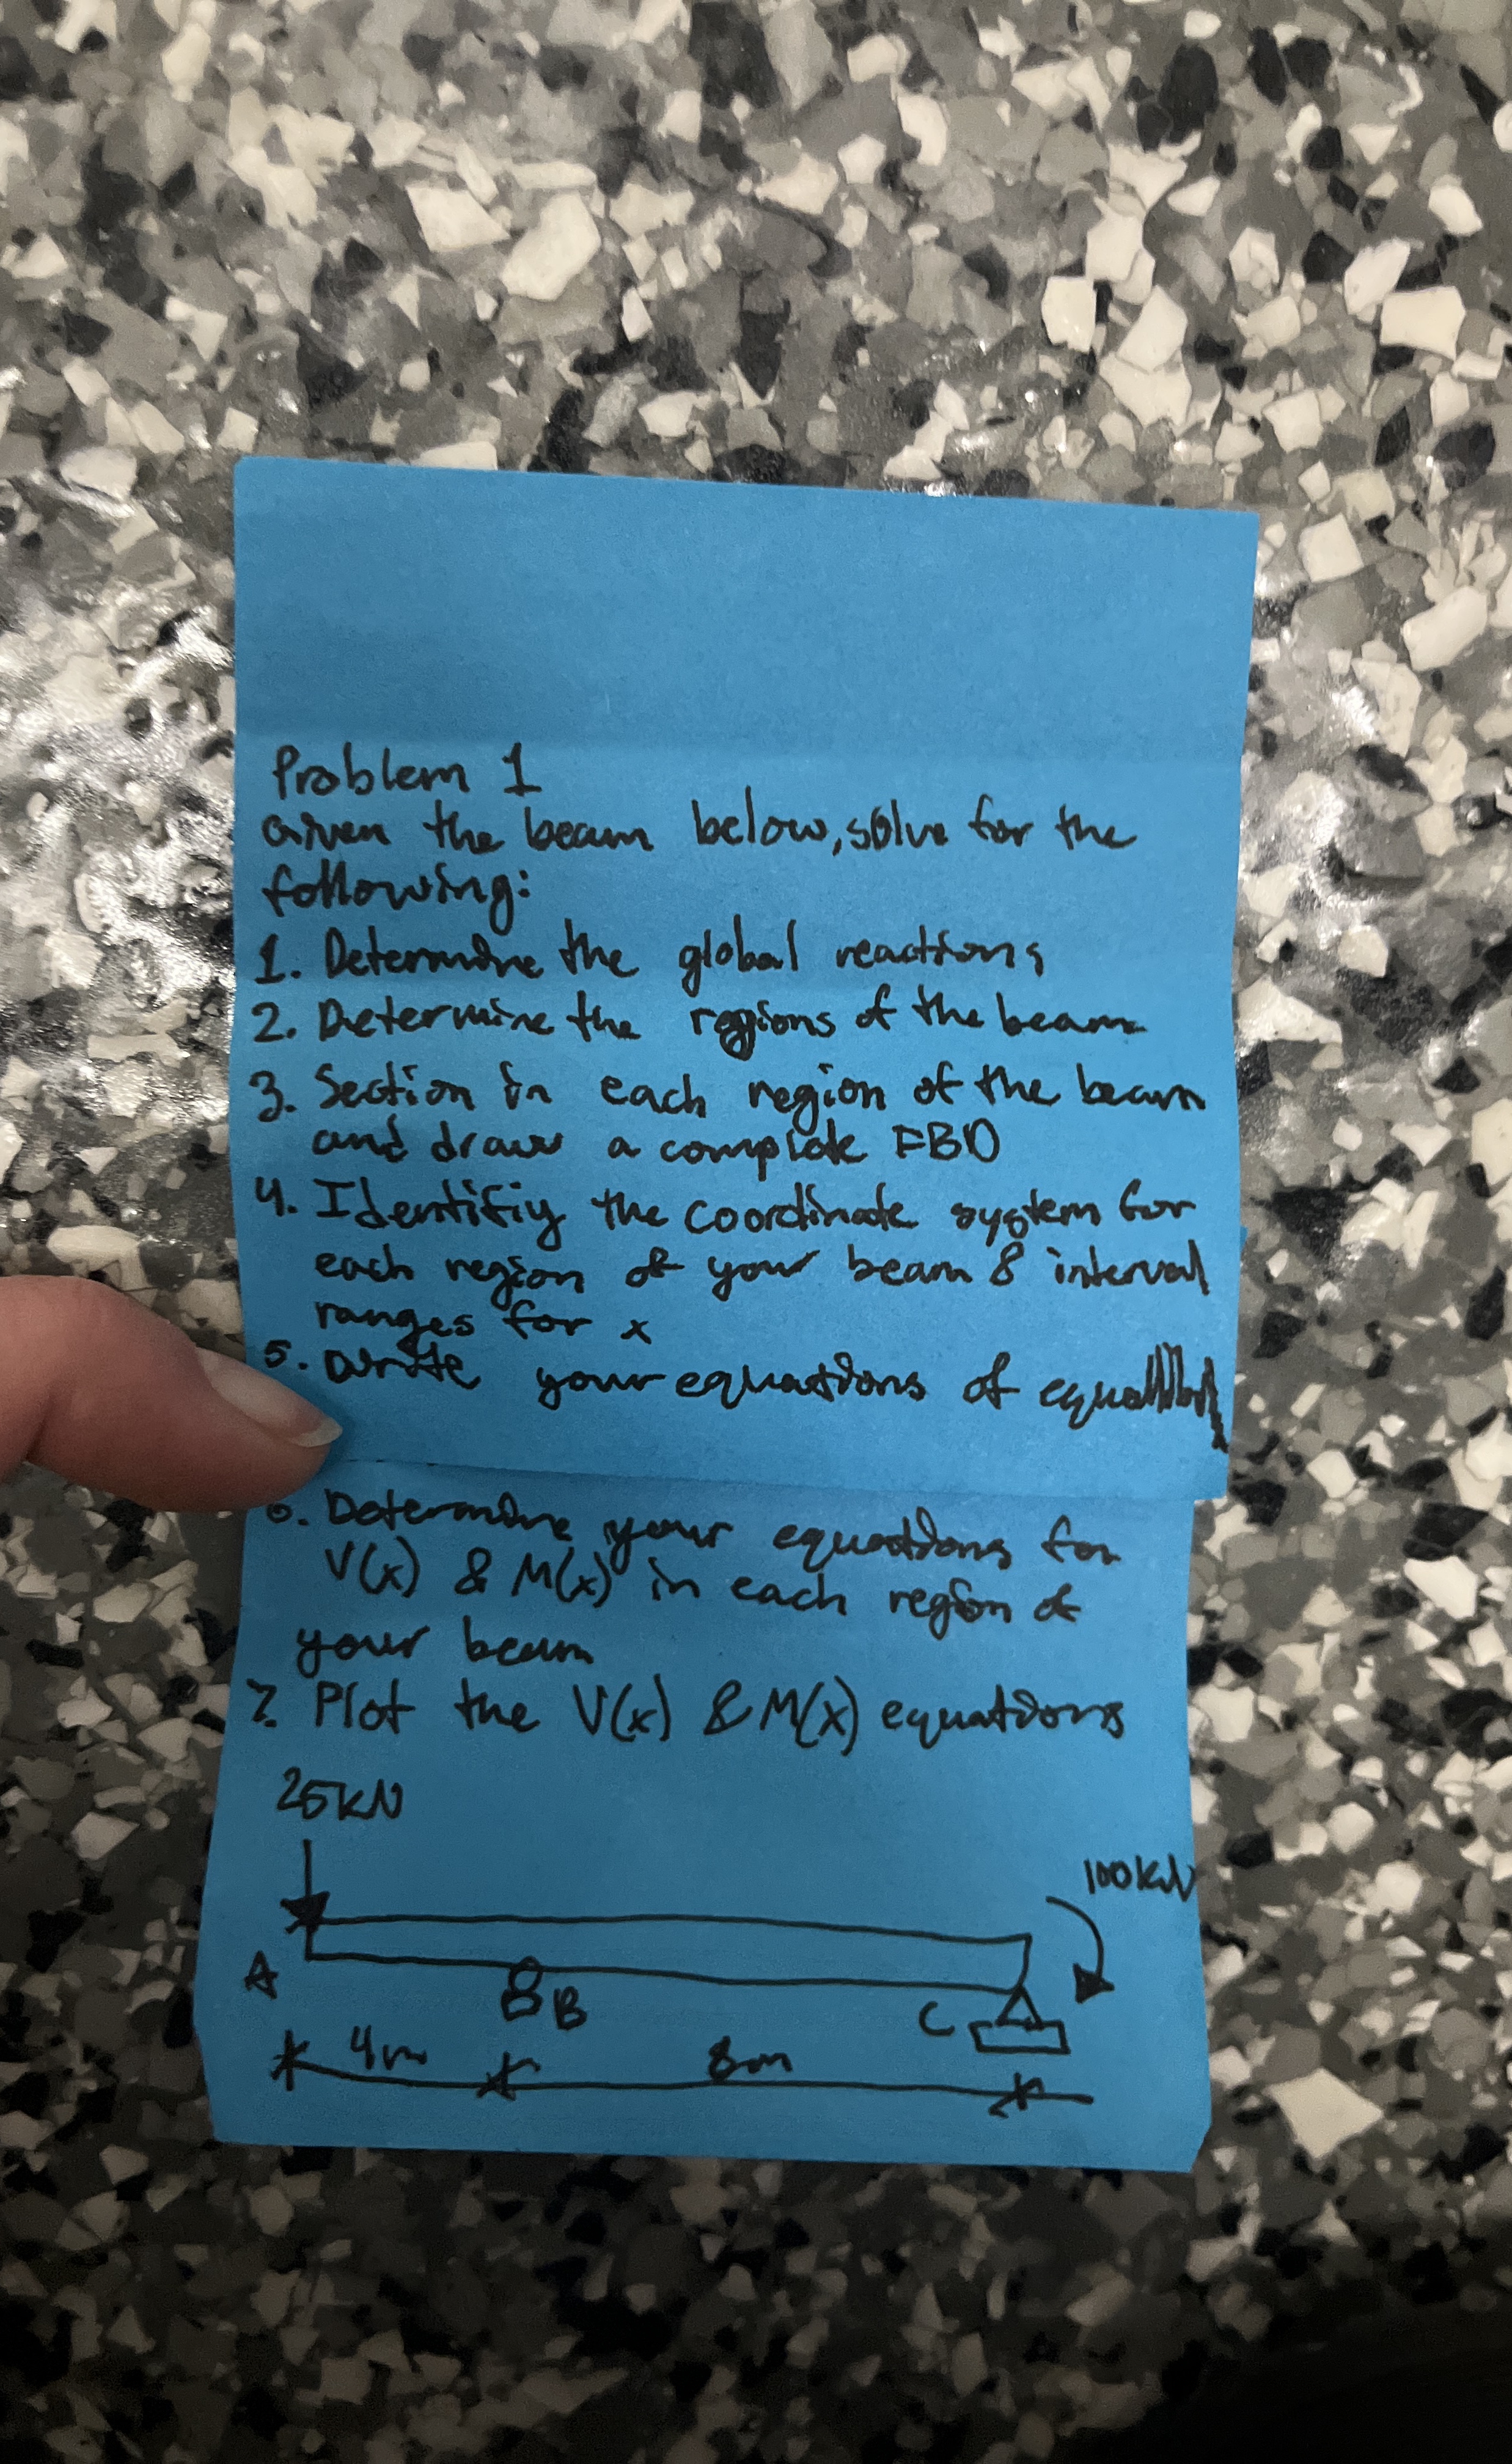 Problem 1
Given the beam below, solve for the
following:
1. Determine the global reactions
2. Determine the regions of the beam
3. Section in each region of the beam
and draw a complete FBD
4. Identifiy the coordinate system for
each region of your beam & interval
ranges for x
5. write your equations of
6. Determine your equations for
V(x) & M(x) in each region of
your beam
7. Plot the V(x) & M(x) equations
25kN
100kN
A
B
C
4m
8m